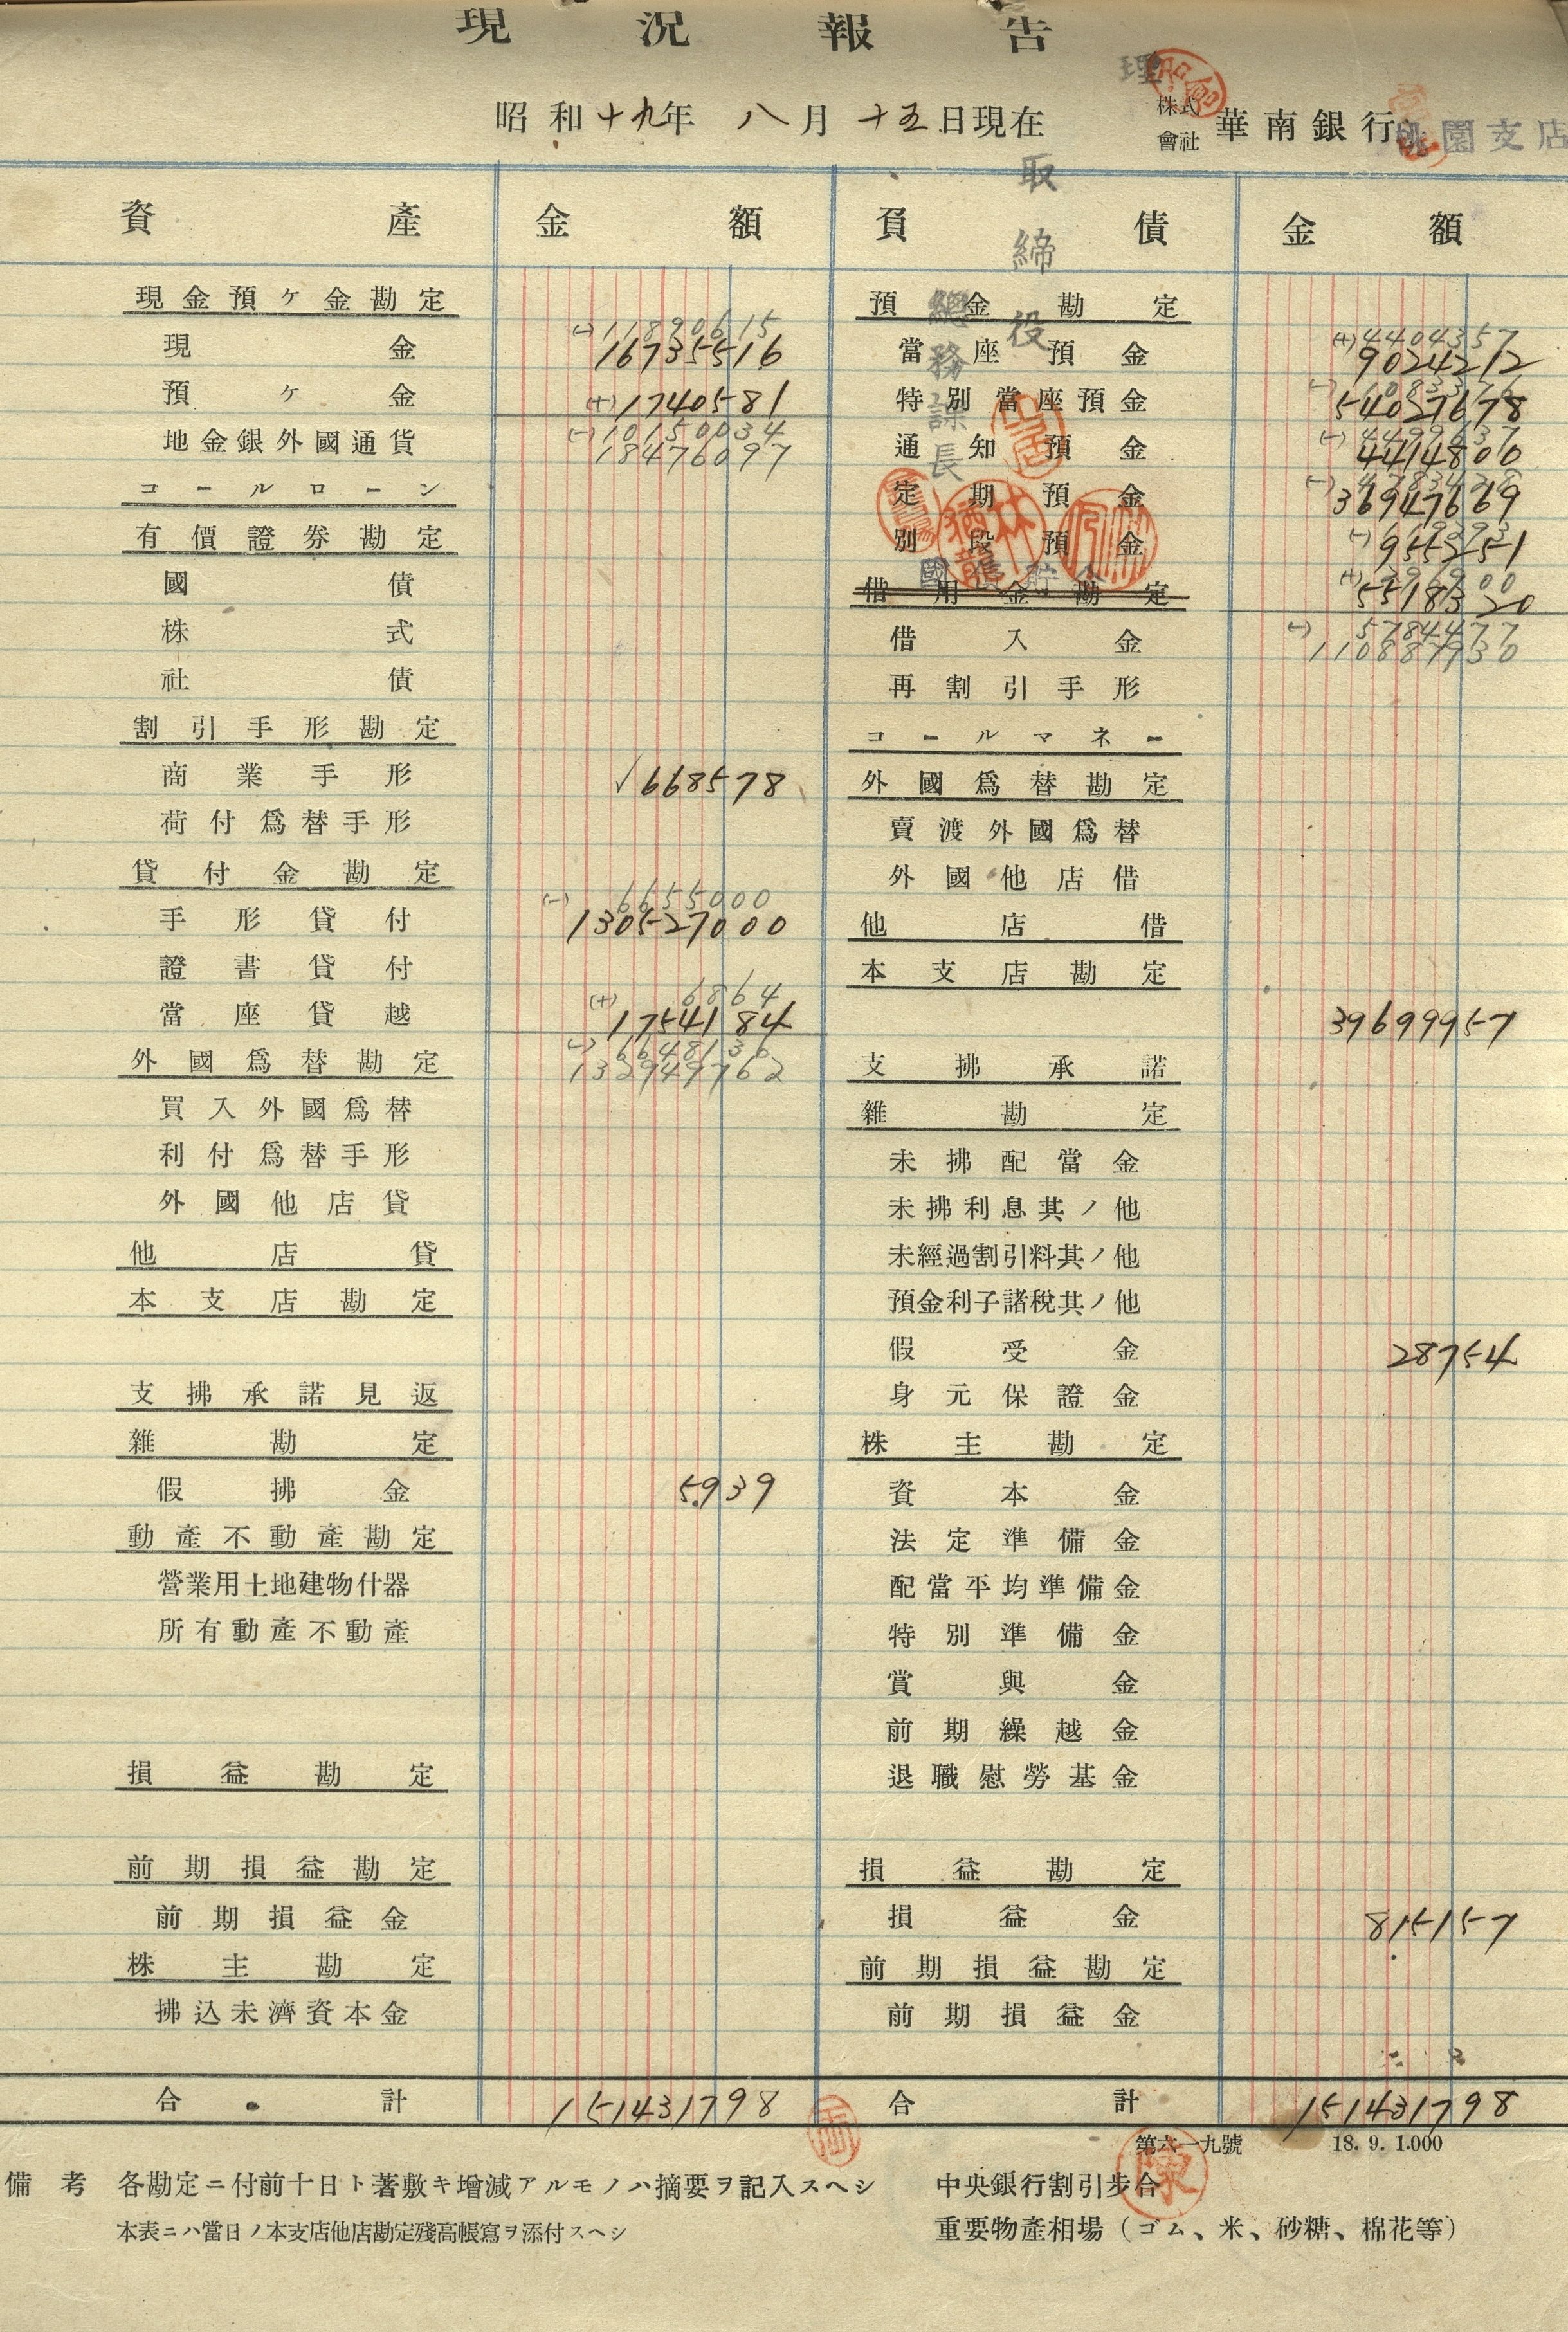 現況報告
昭和十九年 八月 十五日現在
株式會社 華南銀行 桃園支店
理
取締役
總務課長
資產 金額 負債 金額
現金預ケ金勘定
(-)11890615
現金 16735516
預ケ金 (+)1740581
地金銀外國通貨 (-)10150034
18476097
コールローン
有價證券勘定
國債
株式
社債
割引手形勘定
商業手形 √668578
荷付爲替手形
貸付金勘定
(-)6655000
手形貸付 130527000
證書貸付
(+)6864
當座貸越 1754184
外國爲替勘定 (-)6648136
132949762
買入外國爲替
利付爲替手形
外國他店貸
他店貸
本支店勘定
支拂承諾見返
雜勘定
假拂金 5939
動產不動產勘定
營業用土地建物什器
所有動產不動產
損益勘定
前期損益勘定
前期損益金
株主勘定
拂込未濟資本金
合計 151431798
預金勘定
(+)4404357
當座預金 9024212
特別當座預金 54027678
通知預金 4414806
定期預金 36947669
別段預金 955251
(+)
國 貯金 5518320
借用金勘定
(-)5784477
借入金 110887930
再割引手形
コールマネー
外國爲替勘定
賣渡外國爲替
外國他店借
他店借
本支店勘定
39699957
支拂承諾
雜勘定
未拂配當金
未拂利息其ノ他
未經過割引料其ノ他
預金利子諸稅其ノ他
假受金 28754
身元保證金
株主勘定
資本金
法定準備金
配當平均準備金
特別準備金
賞與金
前期繰越金
退職慰勞基金
損益勘定
損益金 815157
前期損益勘定
前期損益金
合計 151431798
第六一九號 18.9.1.000
陳
備考 各勘定ニ付前十日ト著敷キ增減アルモノハ摘要ヲ記入スヘシ
本表ニハ當日ノ本支店他店勘定殘高帳寫ヲ添付スヘシ
中央銀行割引步合
重要物產相場(ゴム、米、砂糖、棉花等)